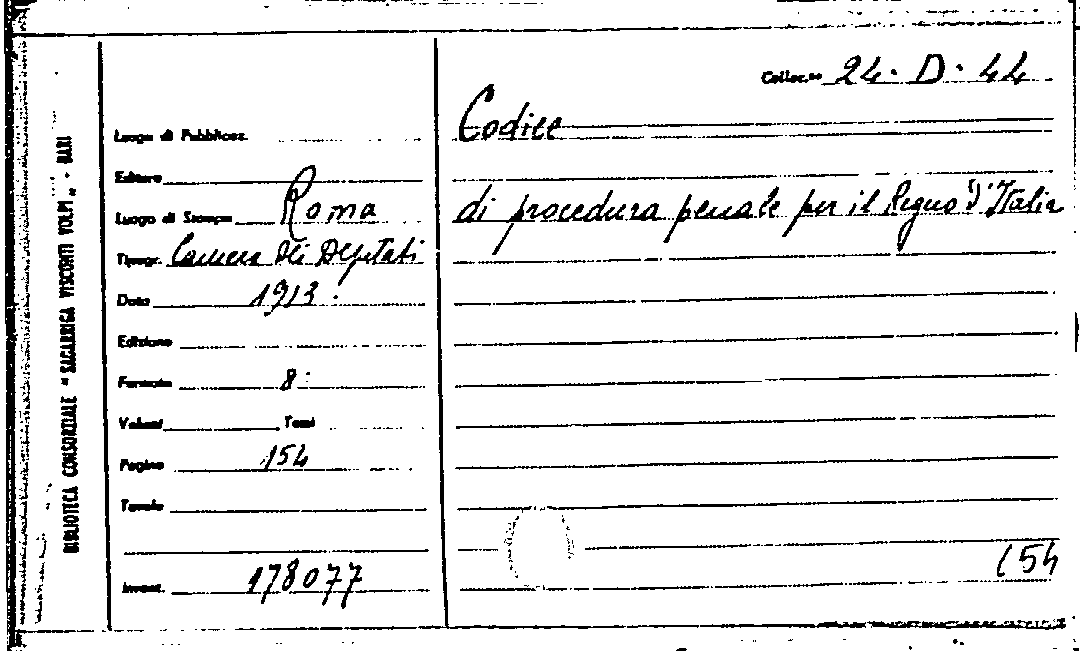 BIBLIOTECA CONSORZIALE "SAGARRIGA VISCONTI VOLPI" - BARI
Colloc.ne 24. D. 44
Luogo di Pubblicaz.
Editore
Luogo di Stampa Roma
Tipogr. Camera dei Deputati
Data 1913.
Edizione
Formato 8°
Volumi Tomi
Pagine 154
Tavole
Invent. 178077
Codice
di procedura penale per il Regno d'Italia
(54